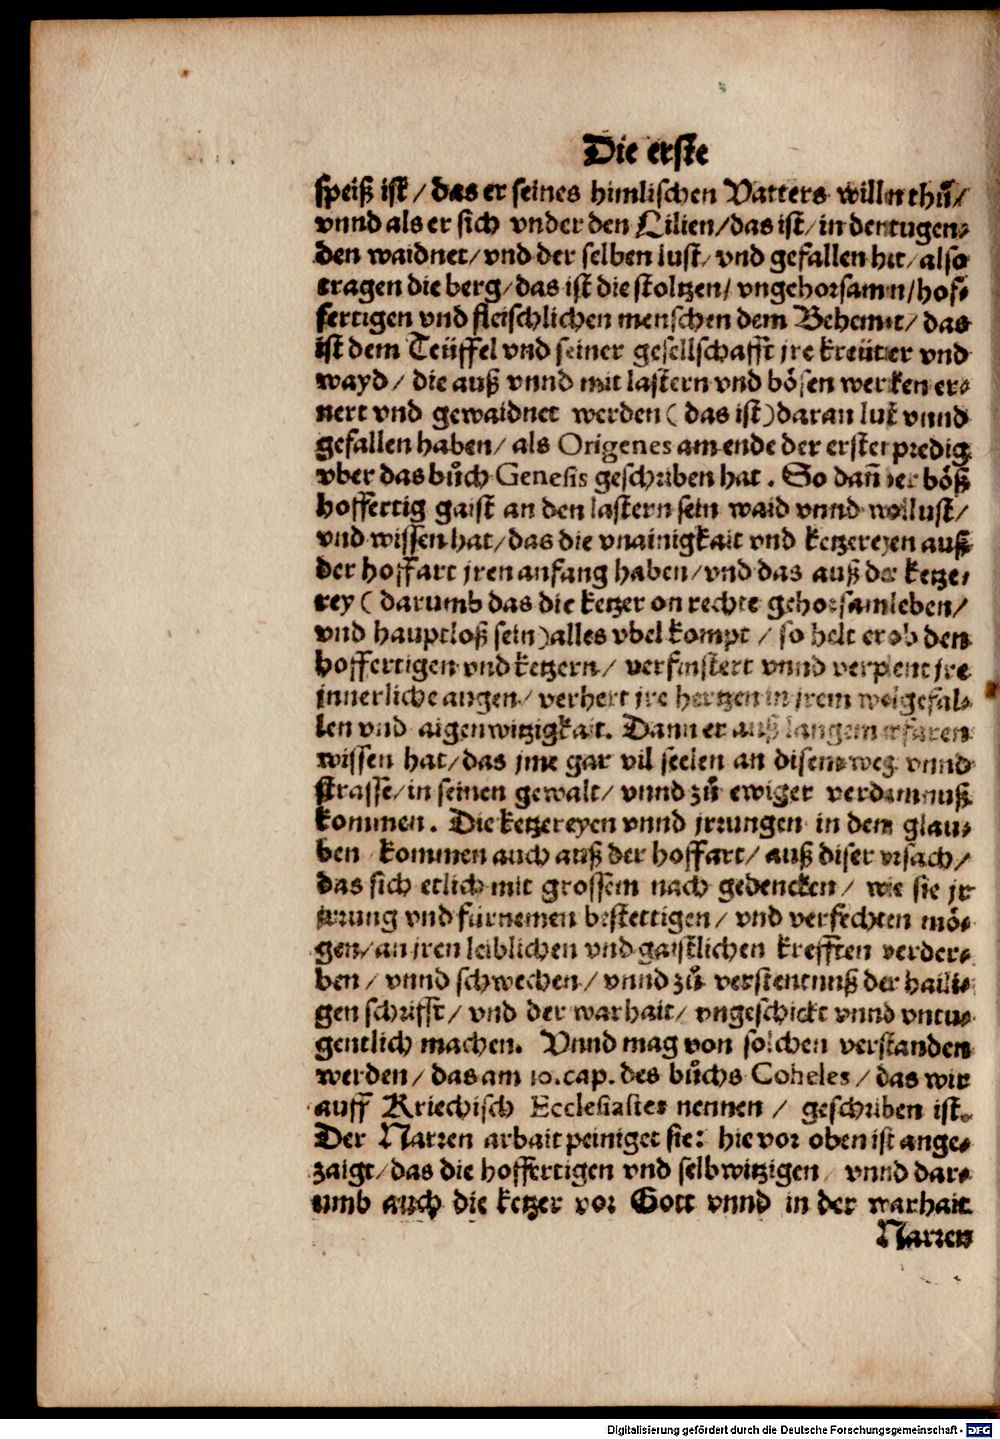 Die erste
speiß ist / das er seines himlischen Vatters willn thuͦ̃ /
vnnd als er sich vnder den Lilien / das ist / in den tugen⸗
den waidnet / vnd der selben lust / vnd gefallen hat / also
tragen die berg / das ist die stoltzen / vngehorsamen / hof⸗
fertigen vnd fleischlichen menschen dem Behemot / das
ist dem Teüffel vnd seiner gesellschafft jre kreütter vnd
wayd / die auß vnnd mit lastern vnd boͤsen wercken er⸗
nert vnd gewaidnet werden ( das ist ) daran lust vnnd
gefallen haben / als Origenes am ende der ersten predig
vber das buͦch Genesis geschriben hat . So dañ der boͤß
hoffertig gaist an den lastern sein waid vnnd wollust /
vnd wissen hat / das die vnainigkait vnd ketzereyen auß
der hoffart jren anfang haben / vnd das auß der ketze⸗
rey ( darumb das die ketzer on rechte gehorsam leben /
vnd hauptloß sein ) alles vbel kompt / so helt er ob den
hoffertigen vnd ketzern / verfinstert vnnd verplent jre
innerliche augen / verhert jre hertzen in jrem wolgefal⸗
len vnd aigenwitzigkait. Dann er auß langem erfaren
wissen hat / das jme gar vil seelen an disem weg vnnd
strasse / in seinen gewalt / vnnd zuͦ ewiger verdamnuß
kommen . Die ketzereyen vnnd jrrungen in dem glau⸗
ben kommen auch auß der hoffart / auß diser vrsach /
das sich etlich mit grossem nach gedencken / wie sie jr
jrrung vnd fürnemen bestettigen / vnd verfechten moͤ⸗
gen / an jren leiblichen vnd gaistlichen krefften verder⸗
ben / vnnd schwechen / vnnd zuͦ verstentnuß der haili⸗
gen schrifft / vnd der warhait / vngeschickt vnnd vntu⸗
gentlich machen. Vnnd mag von solchen verstanden
werden / das am 10. cap. des buͦchs Coheles / das wir
auff Kriechisch Ecclesiastes nennen / geschriben ist.
Der Narren arbait peiniget sie : hie vor oben ist ange⸗
zaigt / das die hoffertigen vnd selbwitzigen / vnnd dar⸗
umb auch die ketzer vor Gott vnnd in der warhait
Narren
Digitalisierung gefördert durch die Deutsche Forschungsgemeinschaft - DFG